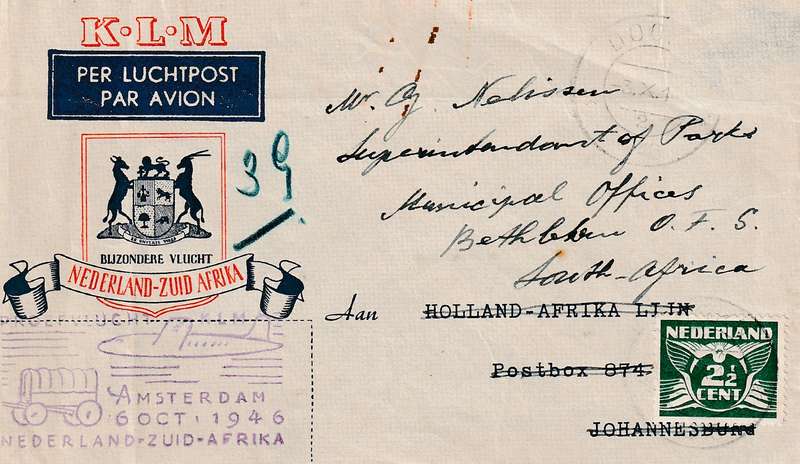 K·L·M
PER LUCHTPOST
PAR AVION
BIJZONDERE VLUCHT
NEDERLAND-ZUID AFRIKA
39
Mr. Nelissen
Superintendant of Parks
Municipal Offices
Bethlehem O. F. S.
South-Africa
Aan HOLLAND-AFRIKA LIJN
Postbox 874
JOHANNESBURG
NEDERLAND
2½
CENT
LUCHT KLM
AMSTERDAM
6 OCT. 1946
NEDERLAND-ZUID-AFRIKA